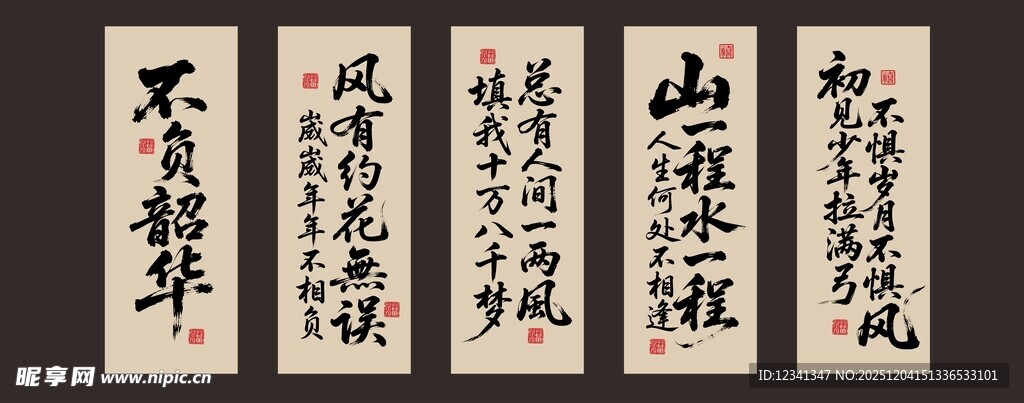 不负韶华
风有约花無误
嵗嵗年年不相负
总有人间一两風
填我十万八千梦
山一程水一程
人生何处不相逢
初见少年拉满弓
不惧岁月不惧风
昵享网 www.nipic.cn
ID:12341347 NO:20251204151336533101